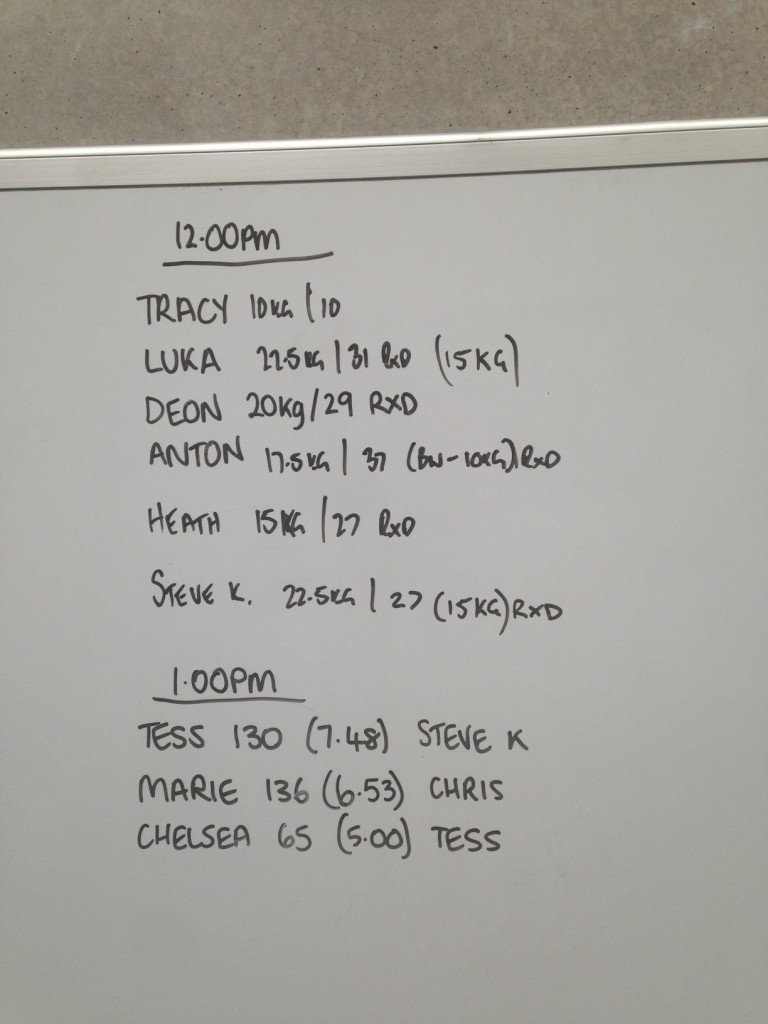 12.00PM
TRACY 10KG / 10
LUKA 22.5KG / 31 RXD (15KG)
DEON 20Kg/29 RXD
ANTON 17.5KG / 37 (BW-10KG) RXD
HEATH 15KG / 27 RXD
STEVE K. 22.5KG / 27 (15KG) RXD
1.00PM
TESS 130 (7.48) STEVE K
MARIE 136 (6.53) CHRIS
CHELSEA 65 (5.00) TESS